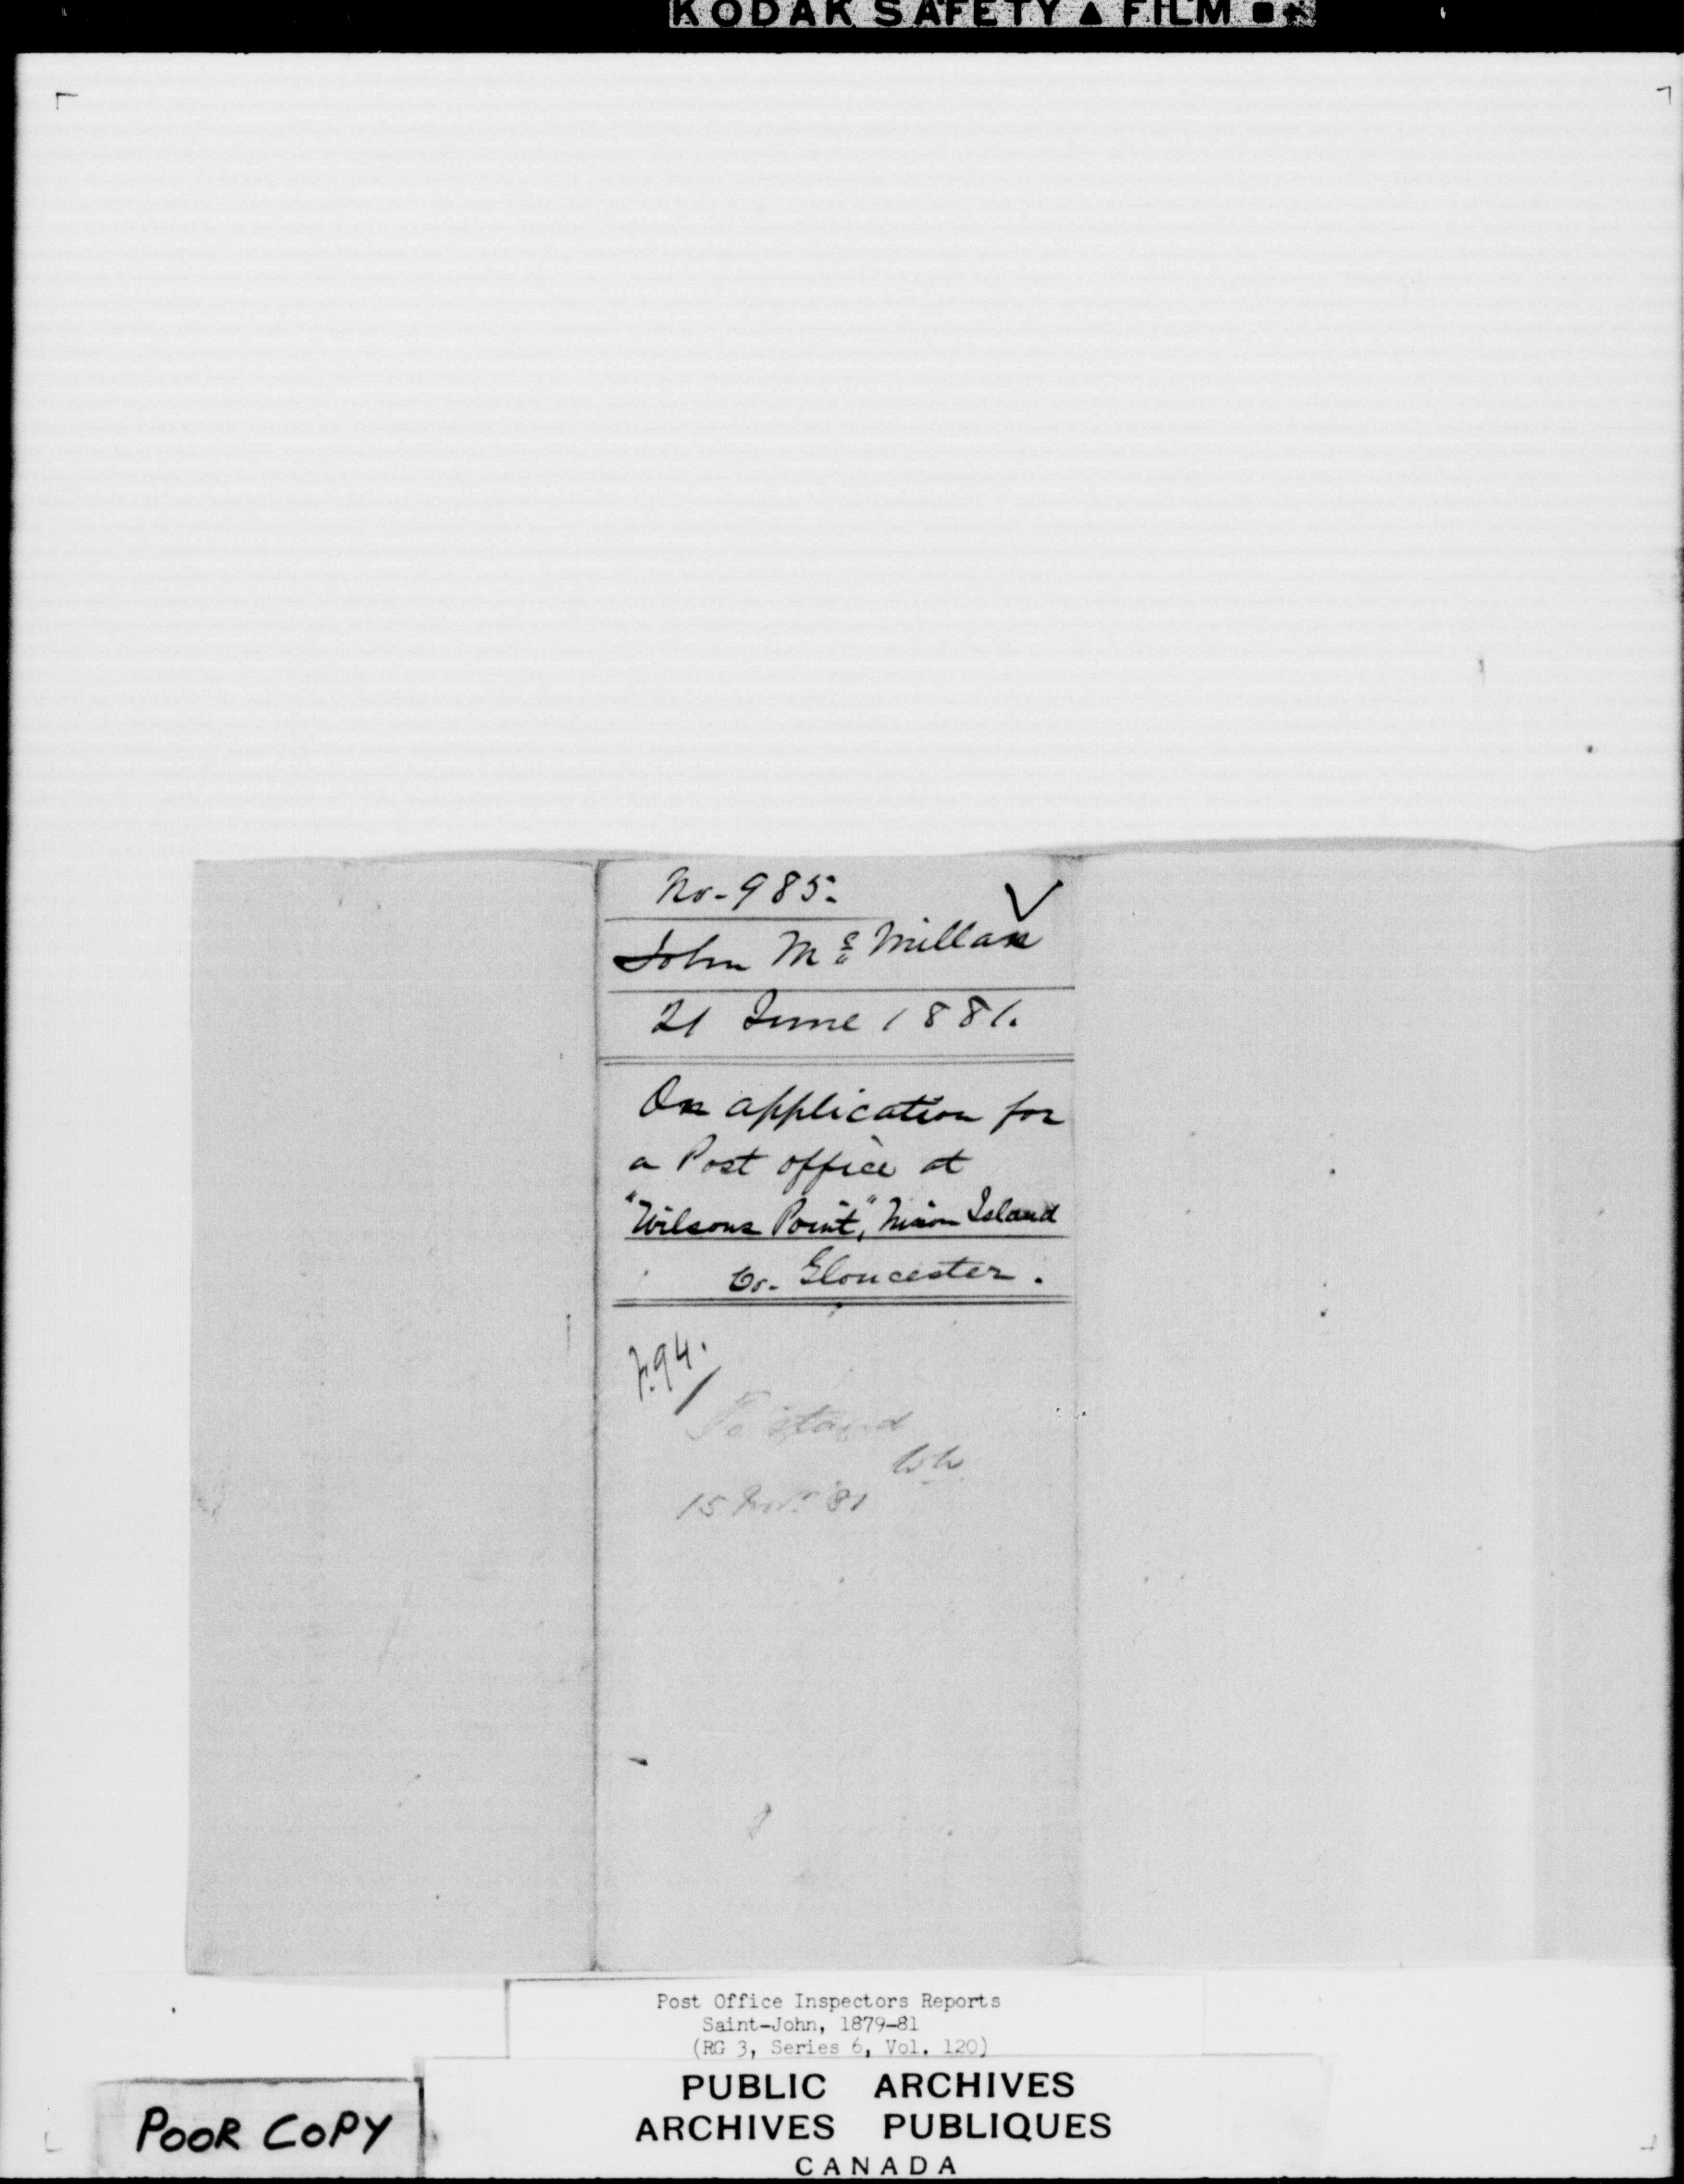 KODAK SAFETY ▲ FILM
No. 985.
John Mc Millan
21 June 1881.
On application for
a Post office at
"Wilsons Point", Island
Co. Gloucester.
94.
To stand
15 Novr 81
Post Office Inspectors Reports
Saint-John, 1879-81
(RG 3, Series 6, Vol. 120)
PUBLIC ARCHIVES
ARCHIVES PUBLIQUES
CANADA
POOR COPY